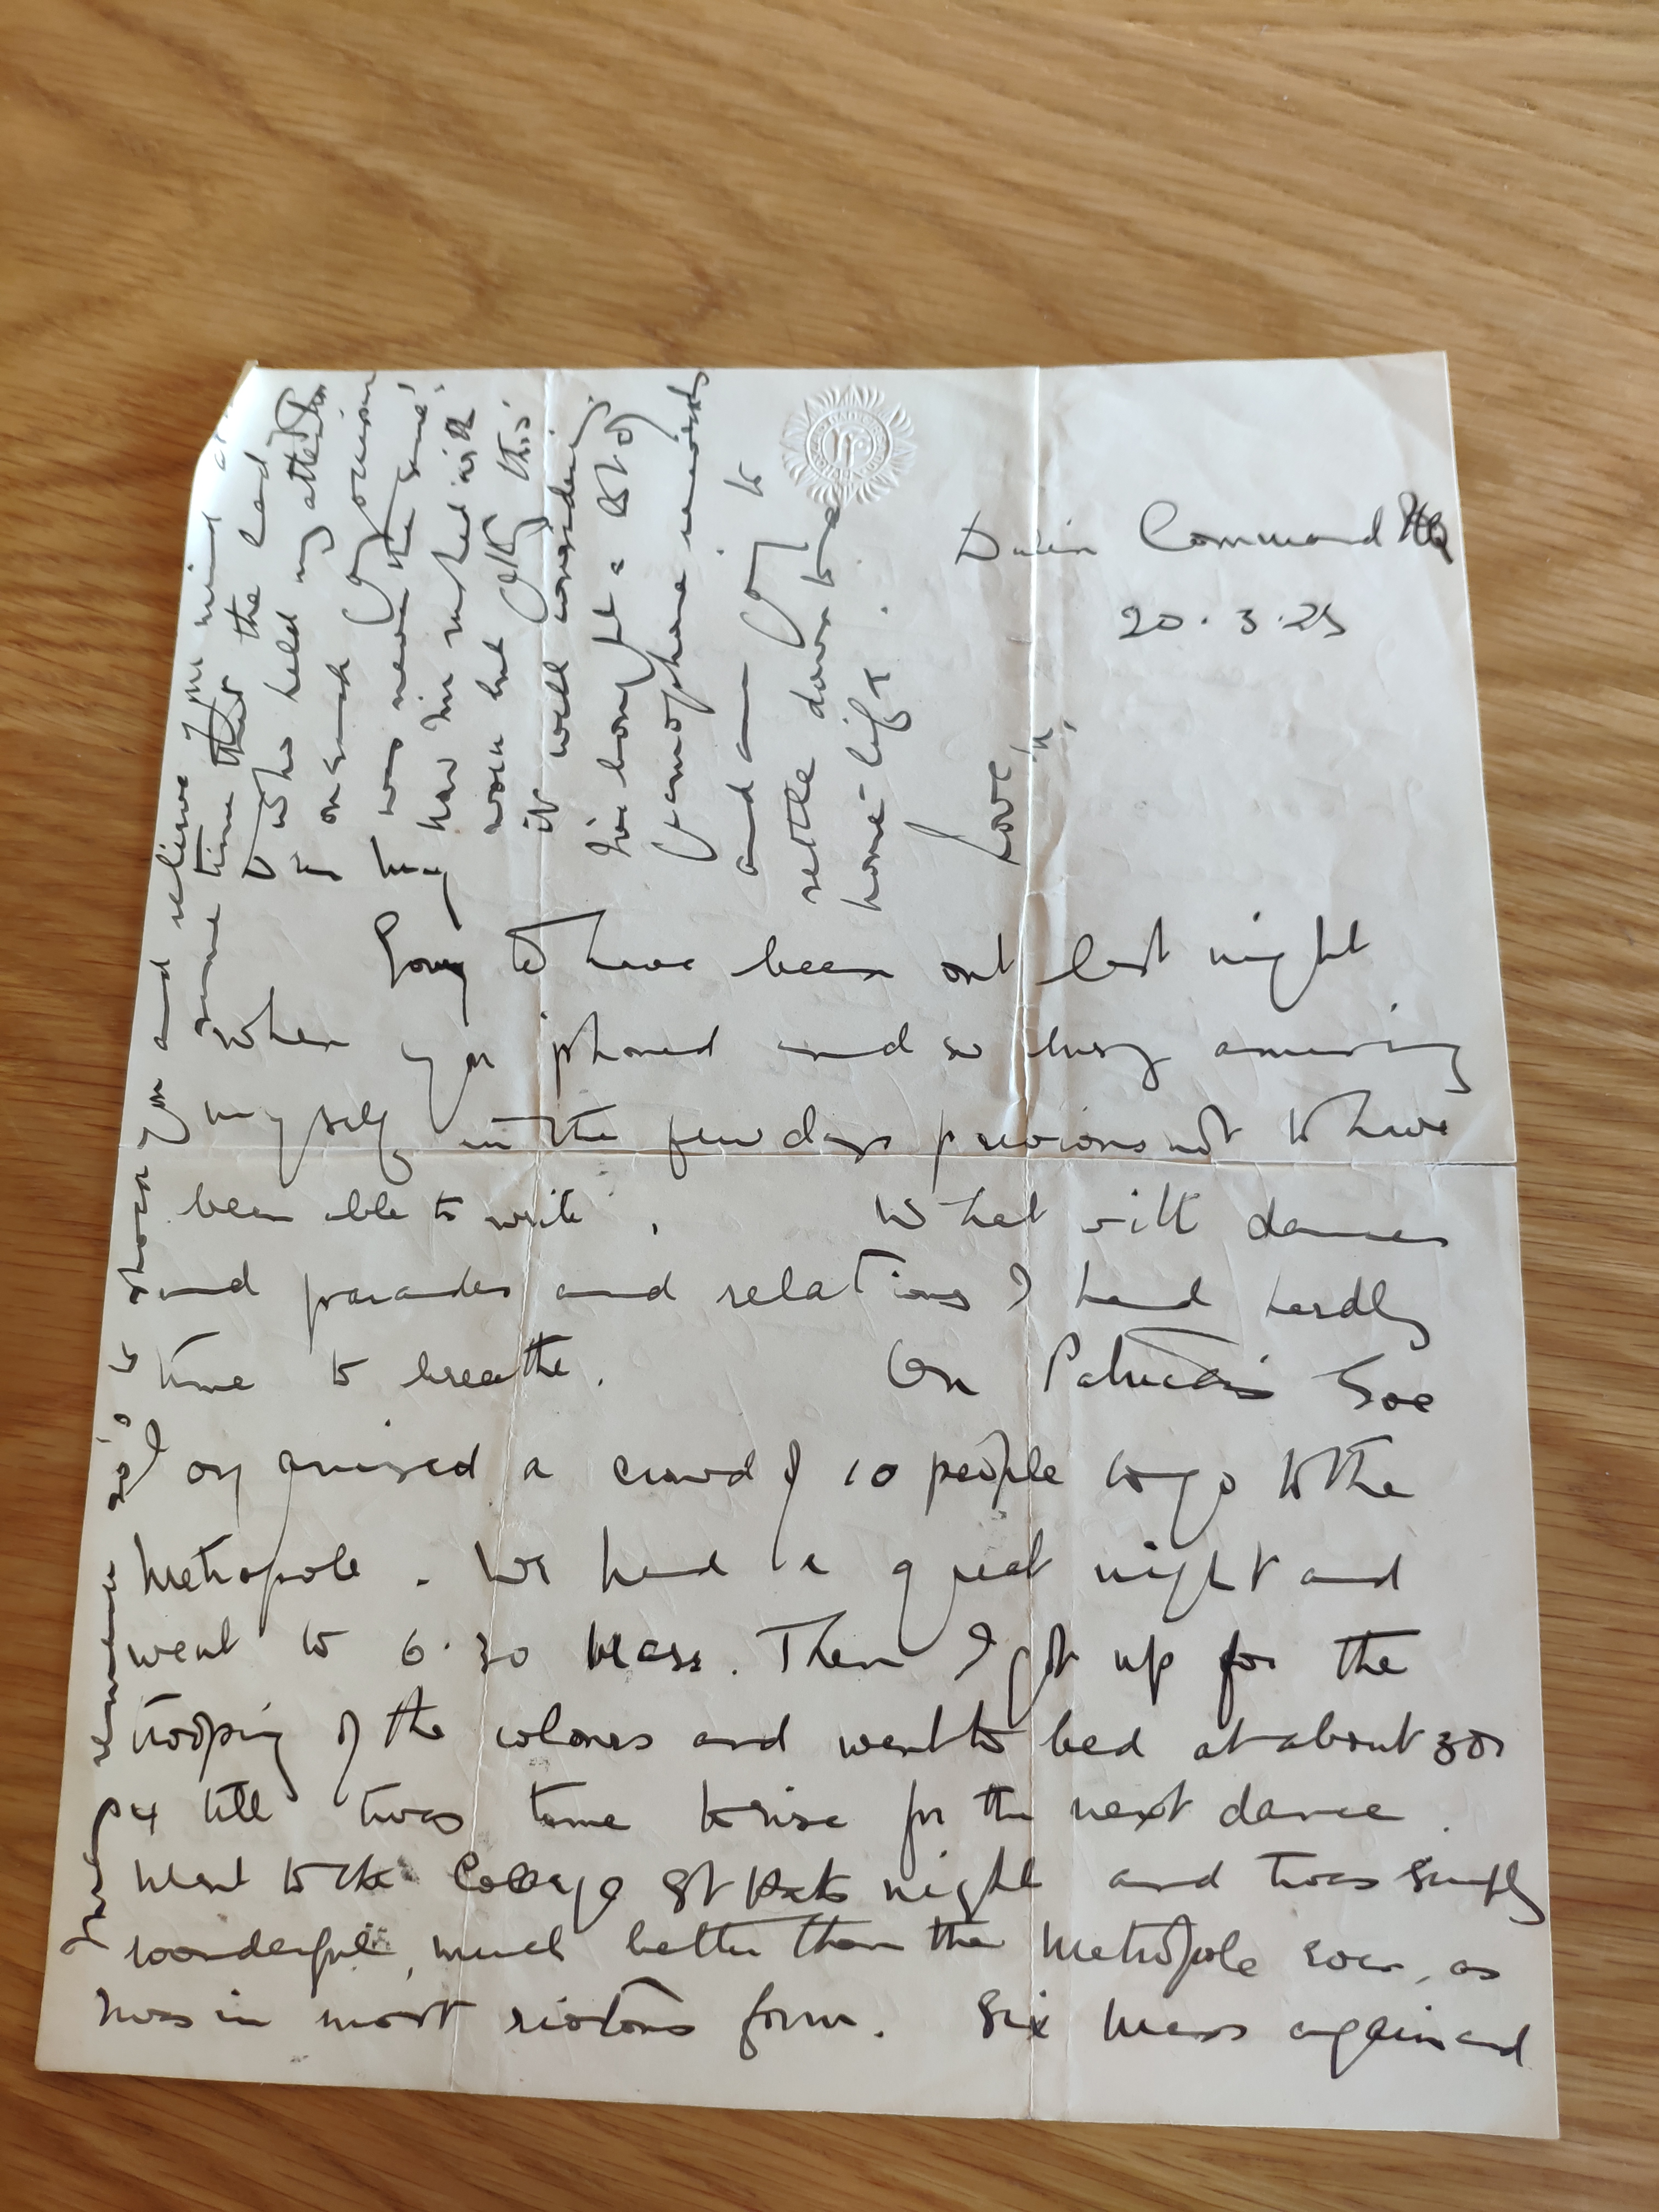 Command HQ
20.3.25
Dear
Sorry to have been out last night
when you phoned and so busy amusing
myself in the few days previous not to have
been able to write. What with dances
and parades and relations I had hardly
time to breathe. On Patrick's Eve
I organised a crowd of 10 people to go to the
Metropole. We had a great night and
went to 6.30 Mass. Then I got up for the
trooping of the colours and went to bed at about 3 or
4 till twas time to rise for the next dance.
Went to the College St Pats night and twas simply
wonderful, much better than the Metropole even, as
twas in most riotous form. Six Mass again and
I must remember to phone you and relieve your mind at
same time that the lad
who held my attention
on such
was never the same
now I'm rushed with
work but this
it well considering
I've bought a lot of
Gramophone records
and am going to
settle down to a
home-life.
Love